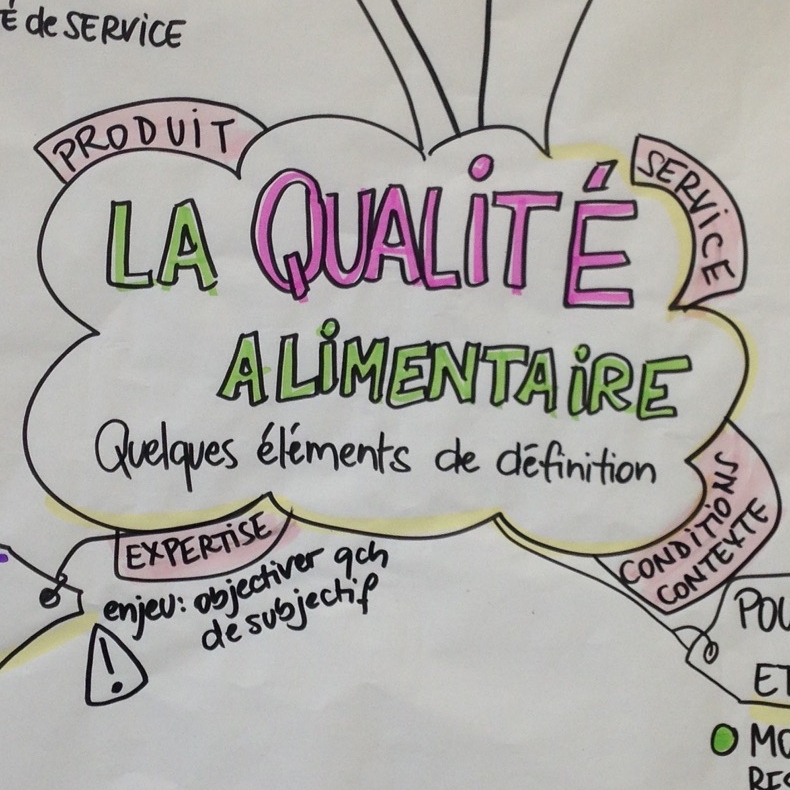 É de SERVICE
PRODUIT
SERVICE
LA QUALITÉ
ALIMENTAIRE
Quelques éléments de définition
CONDITIONS
CONTEXTE
EXPERTISE
enjeu: objectiver qch
de subjectif
!
POU
ET
MO
RES